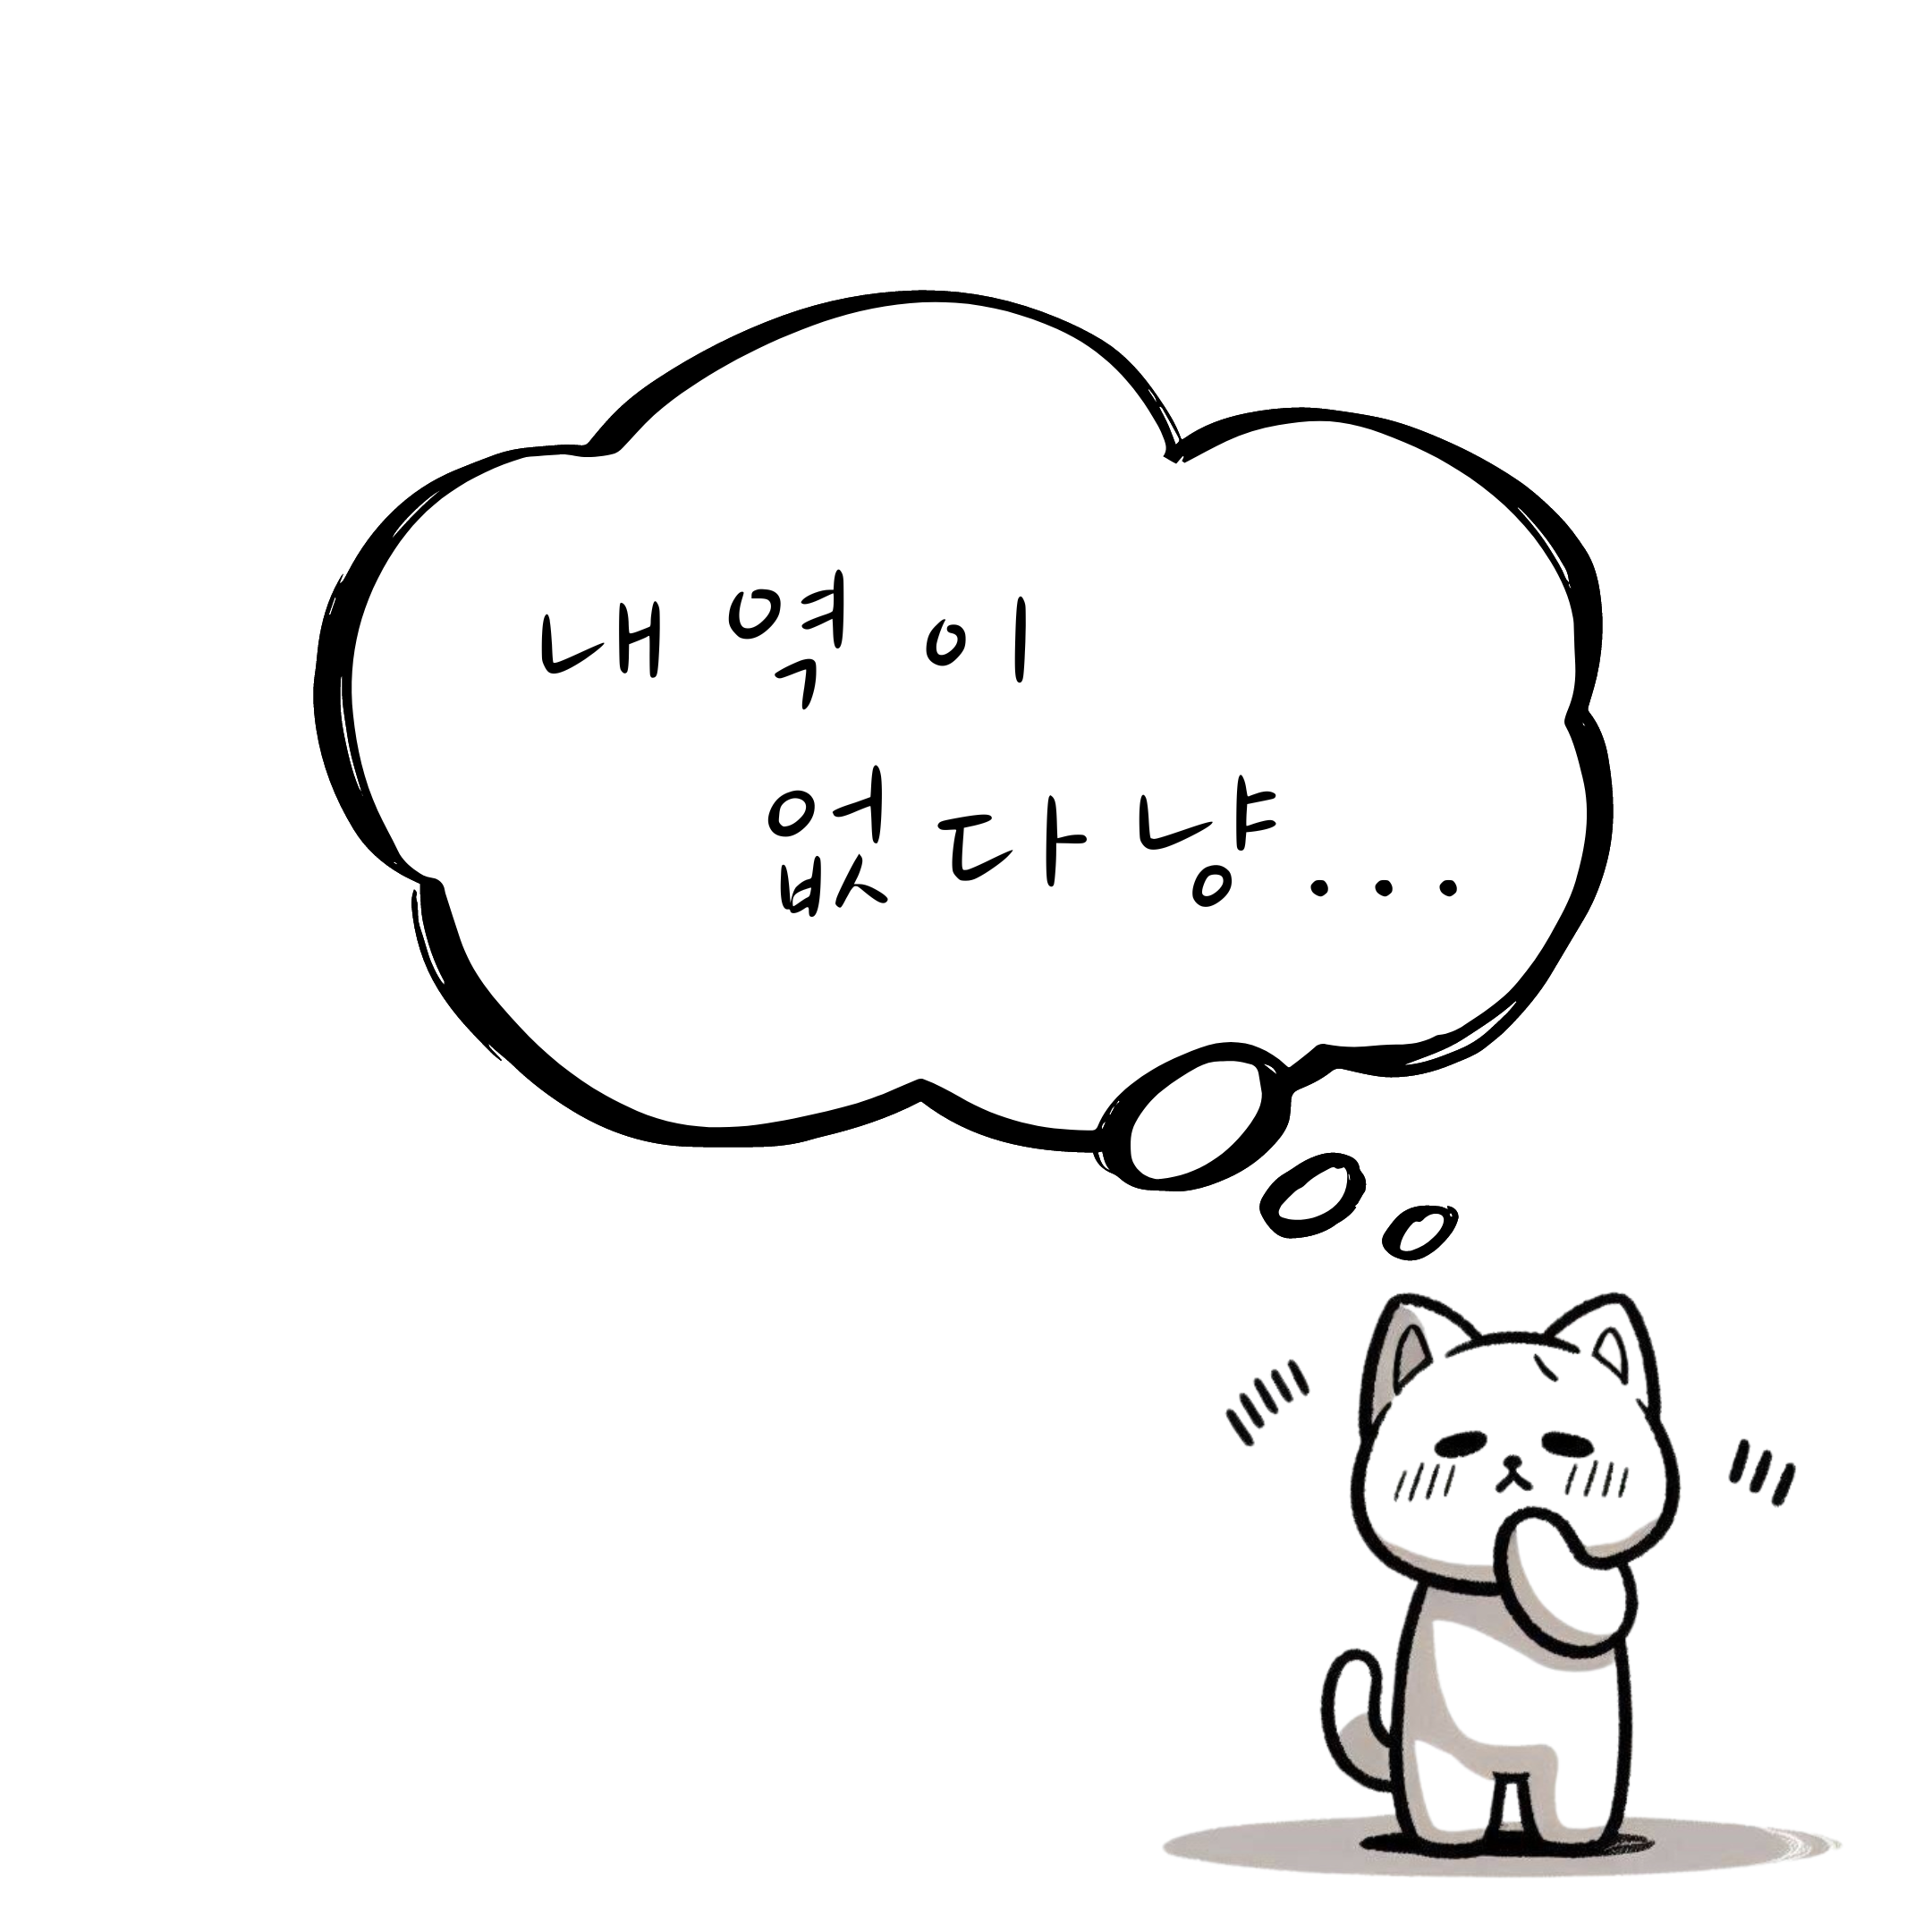 내역이
없다냥...